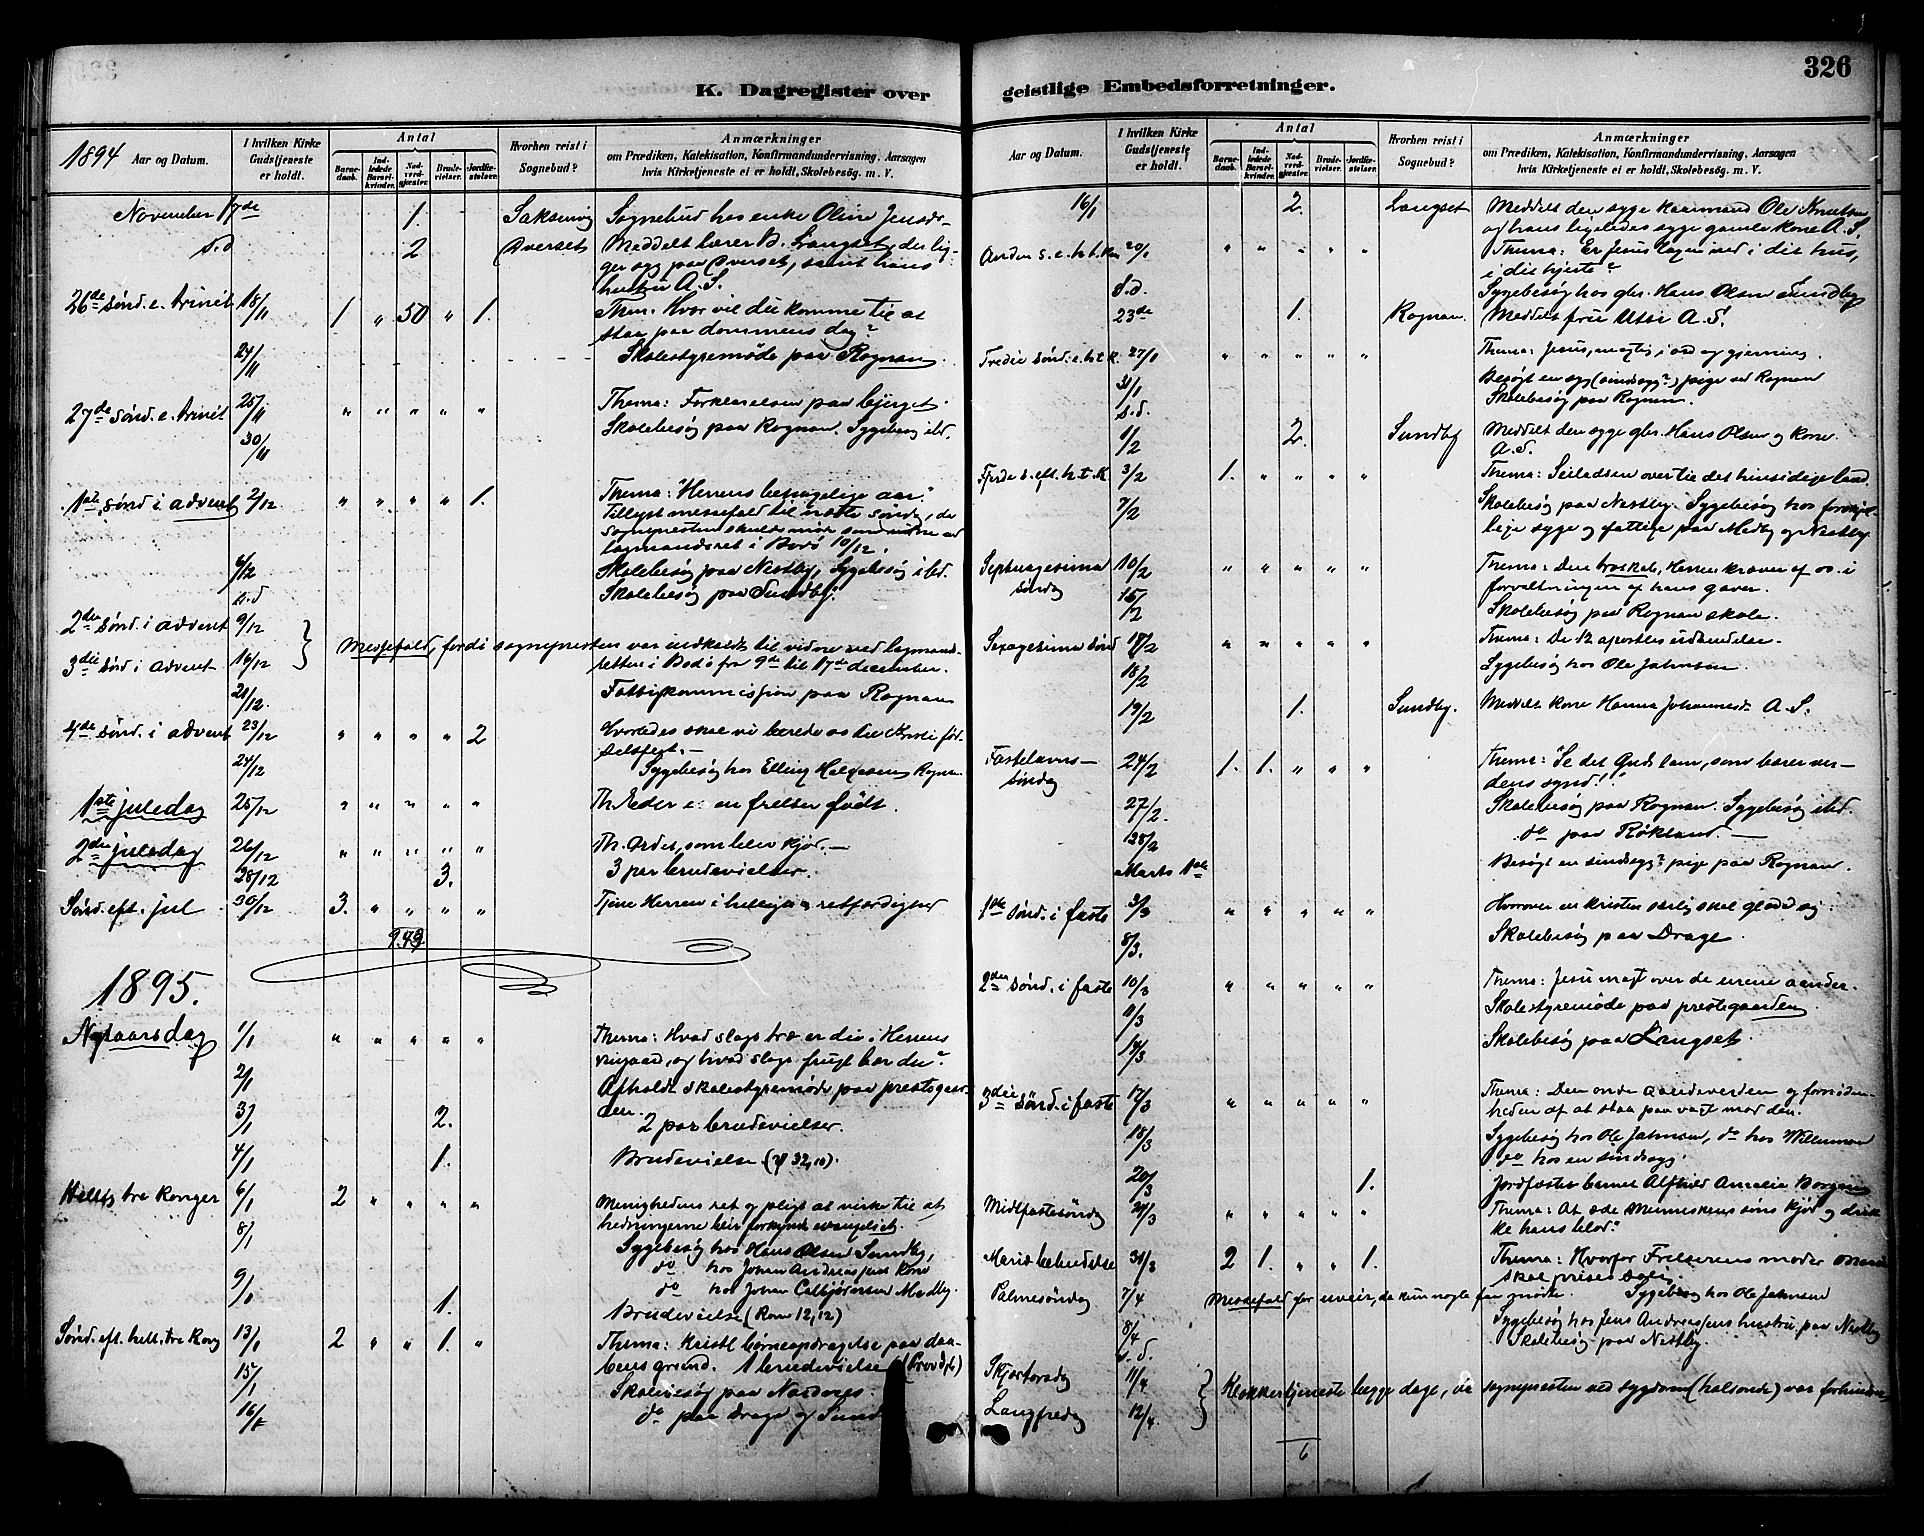 326
K. Dagregister over geistlige Embedsforretninger.
1894
Aar og Datum.
I hvilken Kirke Gudstjeneste er holdt.
Antal
Barnedaab.
Indledede Barselkvinder.
Nadverdgjester.
Brudevielser.
Jordfæstelser.
Hvorhen reist i Sognebud?
Anmærkninger
om Prædiken, Katekisation, Konfirmandundervisning, Aarsagen
hvis Kirketjeneste ei er holdt, Skolebesøg. m. V.
November 17de 1. Saksenvig Sognebud hos enke Olin Jensds.
s.d 2 Øverset Meddelt lærer B. Langset, der lig-
ger syg paa Øverset, samt hans
hustru A.S.
26de sønd. e. trinit. 18/11 1 " 50 " 1. Them. Hvor vil du komme til at
staa paa dommens dag?
24/11 Skolestyremøde paa Rognan.
27de sønd. e. trinit 25/11 " " " " " Thema: Forklarelsen paa bjerget.
30/11 Skolebesøg paa Rognan. Sygebesøg ibd.
1ste sønd i advent 2/12 " " " " 1. Thema: "Herrens behagelige aar."
Tillyst messefald til næste sønd., da
sognepresten skulde møde som vidne ved
lagmandsret i Bodø 10/12.
6/12 Skolebesøg paa Nestby, Sygebesøg ibd.
s.d Skolebesøg paa Sundby.
2den sønd. i advent 9/12
3die sønd i advent 16/12 } Messefald, fordi sognepresten var indkaldt til vidne ved lagmands-
retten i Bodø fra 9de til 17de december.
21/12. Fattigkommission paa Rognan
4de sønd. i advent 23/12 " " " " 2 Hvorledes skal vi berede os til Kristi fød-
selsfest.—
24/12 Sygebesøg hos Elling Helgesen Rognan
1ste juledag 25/12 " " " " " Th. Eder er en frelser født.
2den juledag 26/12 " " " " " Th. Ordet, som blev kjød.—
28/12 3. 3 par brudevielser.
Sønd. eft. jul 30/12 3. " " " " Tjene Herren i hellighed og retfærdighed
949
1895.
Nytaarsdag 1/1 " " " " " Thema: Hvad slags træ er du i Herrens
vingaard, og hvad slags frugt bær du?
2/1 Afholdt skolestyremøde paa prestegaar-
den.
3/1 2. 2 par brudevielser.
4/1 1. Brudevielse (ψ 32,10).
Hellig tre konger 6/1 2 " " " " Menighedens ret og pligt at virke til at
hedningerne blir forkyndt evangeliet.
8/1 Sygebesøg hos Hans Olsen Sundby,
do hos Johan Andreassens kone
9/1 do hos Johan Medby.
1. Brudevielse (Rom 12,12)
Sønd. eft. hell. tre kong 13/1 2 " " 1. " Thema: Kristl børneopdragelse paa daa-
bens grund. 1 brudevielse
15/1 Skolebesøg paa Nordnes.
16/1 do paa Drage og Sund
Aar og Datum.
I hvilken Kirke Gudstjeneste er holdt.
Antal
Barnedaab.
Indledede Barselkvinder.
Nadverdgjester.
Brudevielser.
Jordfæstelser.
Hvorhen reist i Sognebud?
Anmærkninger
om Prædiken, Katekisation, Konfirmandundervisning, Aarsagen
hvis Kirketjeneste ei er holdt, Skolebesøg. m. V.
16/1 2. Langset Meddelt den syge kaarmand Ole Knutsen
og hans ligeledes syge gamle kone A.S.
Anden s. e. h. t. kon 20/1 " " " " " Thema: Er Jesus tagen ind i dit hus,
i dit hjerte?
s.d. Sygebesøg hos gbr. Hans Olsen Sundby
23de 1. Rognan. Meddelt fru A.S.
Tredie sønd. e. h. t. k. 27/1 " " " " " Thema: Jesus, mægtig i ord og gjerning.
31/1 Besøgt en syg (sindssyg?) pige ved Rognan
s.d. Skolebesøg paa Rognan.
1/2 2. Sundby Meddelt den syge gbr. Hans Olsen og kone
A.S.
Fjerde s. eft. h. t. K. 3/2 1. " " " " Thema: Seiladsen over til det hinsidige land.
7/2 Skolebesøg paa Nestby. Sygebesøg hos forskjel-
lige syge og fattige paa Medby og Nestby.
Septuagesima søndag 10/2 " " " " " Thema: Den troskab, Herren kræver af os i
forvaltningen af hans gaver.
15/2 Skolebesøg paa Rognan skole.
Sexagesima sønd 17/2 " " " " " Thema: De 12 apostles udsendelse.
18/2 Sygebesøg hos Ole Jahnsen.
19/2 1. Sundby. Meddelt kone Hanna Johannesd. A.S.
Fastelavns-søndag 24/2 1. 1. " " " Thema: "Se det Guds lam, som bærer ver-
dens synd!"
27/2. Skolebesøg paa Rognan. Sygebesøg ibd.
28/2 do paa Røkland.—
Marts 1ste Besøgt en sindssyg? pige paa Rognan.
1ste sønd. i faste 3/3 " " " " " Hvorover en kristen særlig skal glæde sig.
8/3. Skolebesøg paa Drage.
2den sønd. i faste 10/3 " " " " " Thema: Jesu magt over de urene aander.
11/3 Skolestyremøde paa prestegaarden
14/3 Skolebesøg paa Langset.
3die sønd. i faste 17/3 " " " " " Thema: Den onde aandeverden og fornøden-
heden af at staa paa vagt mod den.
18/3 Sygebesøg hos Ole Jahnsen, do hos Willumsen
do hos en sindssyg.
20/3 1. Jordfæstet barnet Alfhild Amalie Borgen
Midfastesøndag 24/3 " " " " " Thema: At æde Menneskens søns kjød og drik-
ke hans blod."
Mariæ bebudelse 31/3 2 1. " " 1. Thema: Hvorfor Frelserens moder
skal prises salig.
Palmesøndag 7/4 Messefald for uveir, da kun nogle faa mødte. Sygebesøg hos Ole Jahnsen
8/4 Sygebesøg hos Jens Andreassens hustru paa Nestby
s.d. Skolebesøg paa Nestby.
Skjærtorsdag 11/4
Langfredag 12/4 } Klokkertjeneste begge dage, da sognepresten ved sygdom (halsonde) var forhindret
6